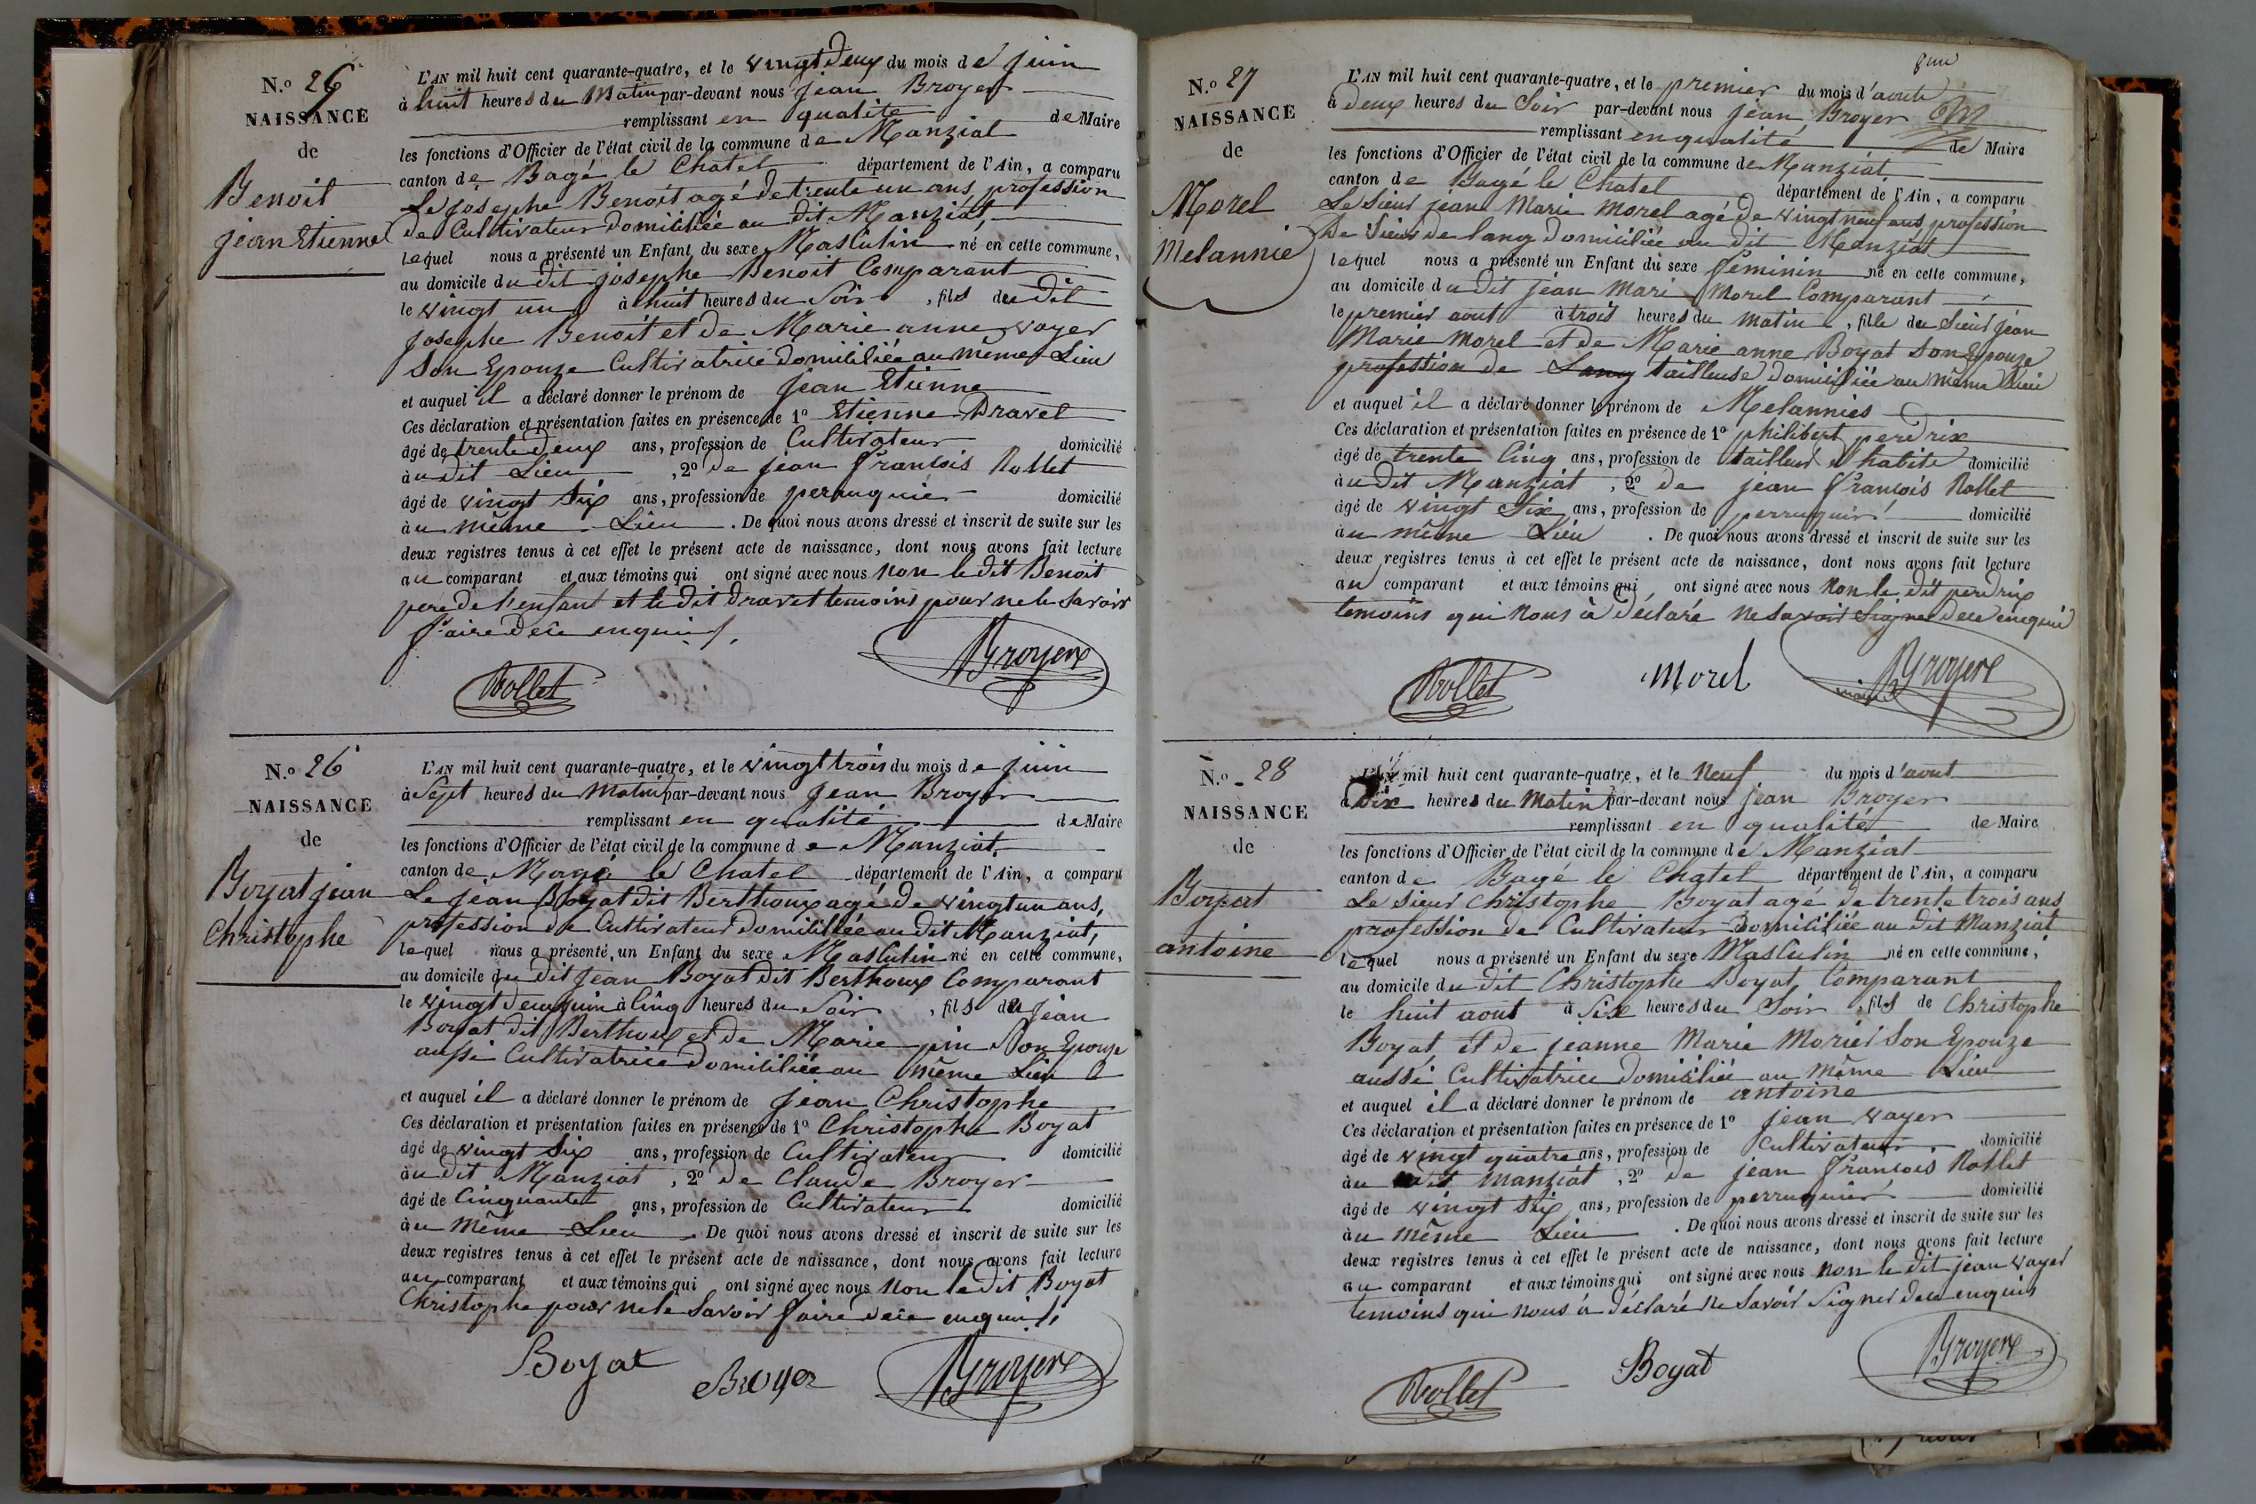 N.o 26
NAISSANCE
de
Benoit
jean Etienne
L'AN mil huit cent quarante-quatre, et le vingt deux du mois de juin
à huit heures du Matin par-devant nous jean Broyer
remplissant en qualité de Maire
les fonctions d'Officier de l'état civil de la commune de Manziat
canton de Bagé le Chatel département de l'Ain, a comparu
Le josephe Benoit agé de trente un ans profession
de Cultivateur domiciliée au dit Manziat
lequel nous a présenté un Enfant du sexe Masculin né en cette commune,
au domicile du dit josephe Benoit Comparant
le vingt un à huit heures du Soir, fils du dit
josephe Benoit et de Marie anne voyer
Son Epouze Cultivatrice domiciliée au même Lieu
et auquel il a déclaré donner le prénom de jean Etienne
Ces déclaration et présentation faites en présence de 1o Etienne Dravet
âgé de trente deux ans, profession de Cultivateur domicilié
à au dit Lieu, 2o de jean francois Rollet
âgé de vingt Six ans, profession de peruquier domicilié
à au même Lieu. De quoi nous avons dressé et inscrit de suite sur les
deux registres tenus à cet effet le présent acte de naissance, dont nous avons fait lecture
au comparant et aux témoins qui ont signé avec nous non le dit Benoit
pere de l'enfant et le dit dravet temoins pour ne le Savoir
faire de ce enquis
Rollet Broyer
N.o 26
NAISSANCE
de
Boyat jean
Christophe
L'AN mil huit cent quarante-quatre, et le vingt trois du mois de juin
à Sept heures du Matin par-devant nous jean Broyer
remplissant en qualité de Maire
les fonctions d'Officier de l'état civil de la commune de Manziat
canton de le Chatel département de l'Ain, a comparu
Le jean Boyat dit Berthoux agé de vingt un ans,
profession de Cultivateur domiciliée au dit Manziat,
lequel nous a présenté un Enfant du sexe Masculin né en cette commune,
au domicile du dit jean Boyat dit Berthoux Comparant
le vingt deux juin à Cinq heures du Soir, fils de jean
Boyat dit Berthoux et de Marie pin Son Epouze
aussi Cultivatrice domiciliée au même Lieu
et auquel il a déclaré donner le prénom de jean Christophe
Ces déclaration et présentation faites en présence de 1o Christophe Boyat
âgé de vingt Six ans, profession de Cultivateur domicilié
à au dit Manziat, 2o de Claude Broyer
âgé de Cinquante ans, profession de Cultivateur domicilié
à au même Lieu. De quoi nous avons dressé et inscrit de suite sur les
deux registres tenus à cet effet le présent acte de naissance, dont nous avons fait lecture
au comparant et aux témoins qui ont signé avec nous non le dit Boyat
Christophe pour ne le Savoir faire de ce enquis
Boyat Broyer Broyer
N.o 27
NAISSANCE
de
Morel
Melannie
L'AN mil huit cent quarante-quatre, et le premier du mois d'aout
à deux heures du Soir par-devant nous jean Broyer
remplissant en qualité de Maire
les fonctions d'Officier de l'état civil de la commune de Manziat
canton de Bagé le Chatel département de l'Ain, a comparu
Le Sieur jean Marie Morel agé de vingt neuf ans profession
De Sieur de lang domiciliée au dit Manziat
lequel nous a présenté un Enfant du sexe féminin né en cette commune,
au domicile du dit jean Mari Morel Comparant
le premier aout à trois heures du matin, fille du Sieur jean
Marie Morel et de Marie anne Boyat Son Epouze
profession de tailleuse domiciliée au même Lieu
et auquel il a déclaré donner le prénom de Melannies
Ces déclaration et présentation faites en présence de 1o philibert perdrix
âgé de trente Cinq ans, profession de tailleur d habite domicilié
à au dit Manziat, 2o de jean francois Rollet
âgé de vingt Six ans, profession de perruquier domicilié
à au même Lieu. De quoi nous avons dressé et inscrit de suite sur les
deux registres tenus à cet effet le présent acte de naissance, dont nous avons fait lecture
au comparant et aux témoins qui ont signé avec nous non le dit perdrix
temoins qui nous à déclaré ne Savoir Signer de ce enquis
Rollet Morel Broyer
maire
N.o 28
NAISSANCE
de
Boyat
antoine
L'AN mil huit cent quarante-quatre, et le neuf du mois d'aout
à Dix heures du Matin par-devant nous jean Broyer
remplissant en qualité de Maire
les fonctions d'Officier de l'état civil de la commune de Manziat
canton de Bagé le Chatel département de l'Ain, a comparu
Le sieur Christophe Boyat agé de trente trois ans
profession de Cultivateur Domiciliée au dit Manziat
lequel nous a présenté un Enfant du sexe Masculin né en cette commune,
au domicile du dit Christophe Boyat Comparant
le huit aout à Six heures du Soir, fils de Christophe
Boyat et de jeanne Marie Morier Son Epouze
aussi Cultivatrice domiciliée au même Lieu
et auquel il a déclaré donner le prénom de antoine
Ces déclaration et présentation faites en présence de 1o jean vayer
âgé de vingt quatre ans, profession de Cultivateur domicilié
à au dit Manziat, 2o de jean francois Rollet
âgé de vingt Six ans, profession de perruquier domicilié
à au même Lieu. De quoi nous avons dressé et inscrit de suite sur les
deux registres tenus à cet effet le présent acte de naissance, dont nous avons fait lecture
au comparant et aux témoins qui ont signé avec nous non le dit jean vayer
temoins qui nous à déclaré ne Savoir Signer de ce enquis
Rollet Boyat Broyer